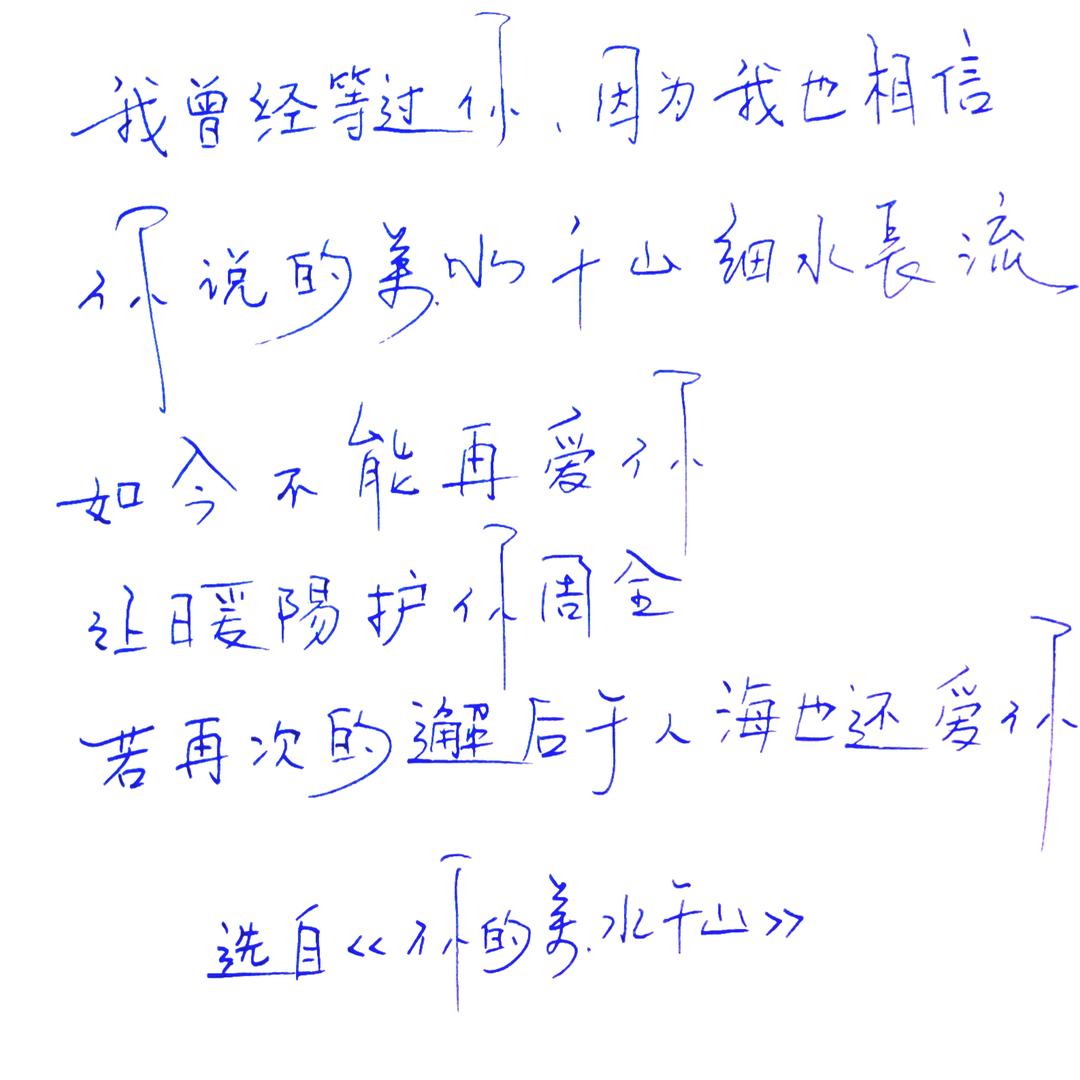 我曾经等过你、因为我也相信
你说的美水千山细水長流
如今不能再爱你
让暖陽护你周全
若再次的邂后于人海也还爱你
选自《你的美水千山》